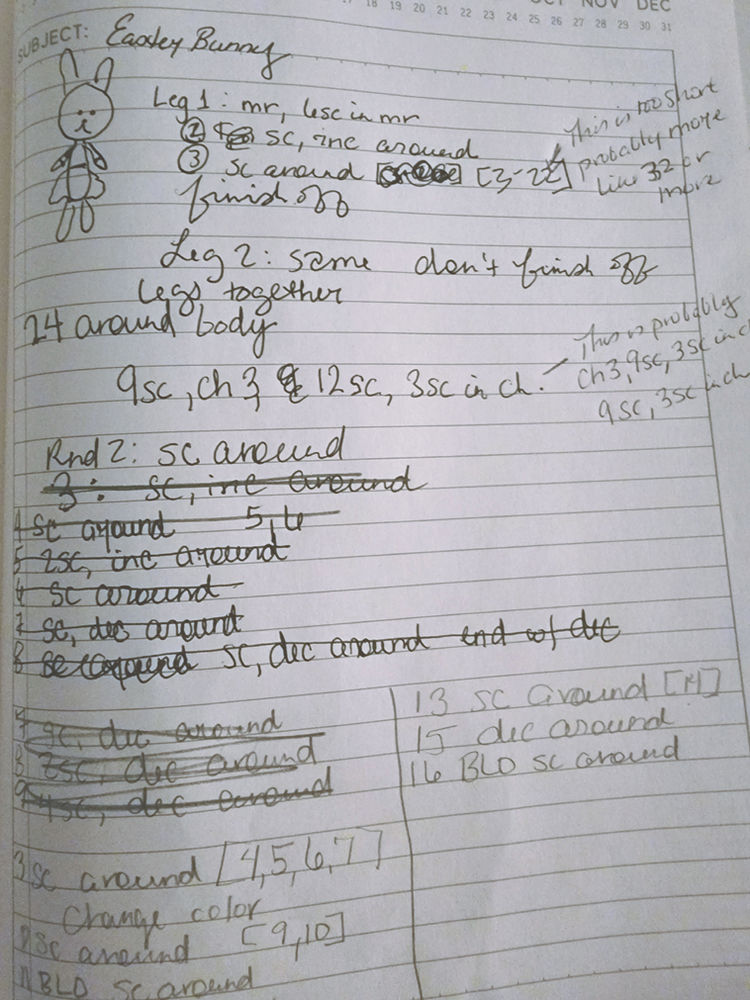 OCT NOV DEC
18 19 20 21 22 23 24 25 26 27 28 29 30 31
SUBJECT: Easter Bunny
Leg 1: mr, 6sc in mr
② sc, inc around
③ sc around [3-22]
finish off
This is too short
probably more
like 32 or
more
Leg 2: same don't finish off
legs together
24 around body
9sc, ch 3, 12sc, 3sc in ch.
This is probably
ch3, 9sc, 3sc in ch
9sc, 3sc in ch
Rnd 2: sc around
3: sc, inc around
4 sc around 5, 6
5 2sc, inc around
6 sc around
7 sc, dec around
8 sc around sc, dec around end w/ dec
7 sc, dec around
8 2sc, dec around
9 sc, dec around
3 sc around [4,5,6,7]
Change color
sc around [9,10]
11 BLO sc around
13 sc around [14]
15 dec around
16 BLO sc around